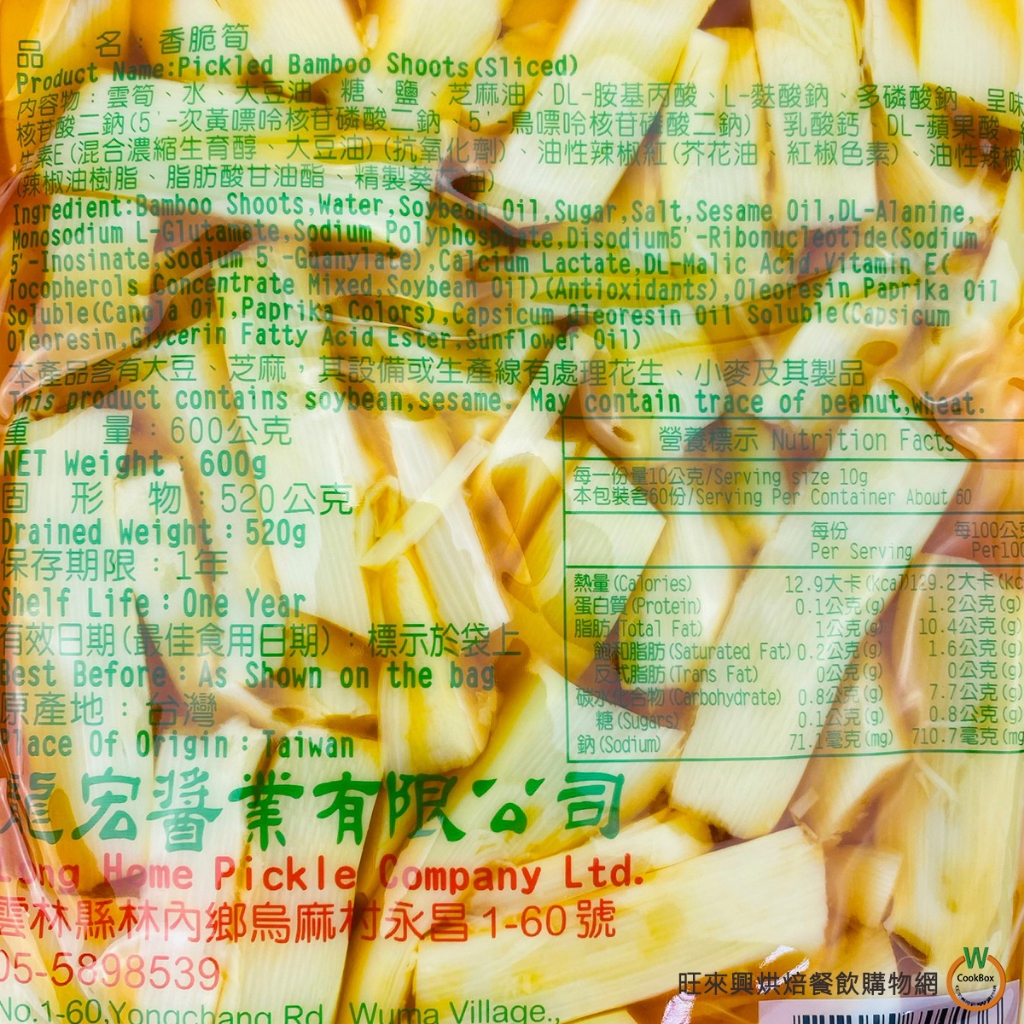 品 名：香脆筍
Product Name:Pickled Bamboo Shoots(Sliced)
內容物：雲筍、水、大豆油、糖、鹽、芝麻油、DL-胺基丙酸、L-麩酸鈉、多磷酸鈉、呈味
核苷酸二鈉(5'-次黃嘌呤核苷磷酸二鈉、5'-鳥嘌呤核苷磷酸二鈉)、乳酸鈣、DL-蘋果酸、
生素E(混合濃縮生育醇、大豆油)(抗氧化劑)、油性辣椒紅(芥花油、紅椒色素)、油性辣椒
(辣椒油樹脂、脂肪酸甘油酯、精製葵 油)
Ingredient:Bamboo Shoots,Water,Soybean Oil,Sugar,Salt,Sesame Oil,DL-Alanine,
Monosodium L-Glutamate,Sodium Polyphosphate,Disodium5'-Ribonucleotide(Sodium
5'-Inosinate,Sodium 5'-Guanylate),Calcium Lactate,DL-Malic Acid,Vitamin E(
Tocopherols Concentrate Mixed,Soybean Oil)(Antioxidants),Oleoresin Paprika Oil
Soluble(Cangla Oil,Paprika Colors),Capsicum Oleoresin Oil Soluble(Capsicum
Oleoresin,Glycerin Fatty Acid Ester,Sunflower Oil)
本產品含有大豆、芝麻，其設備或生產線有處理花生、小麥及其製品
This product contains soybean,sesame. May contain trace of peanut,wheat.
重 量：600公克
NET Weight 600g
固 形 物：520公克
Drained Weight：520g
保存期限：1年
Shelf Life：One Year
有效日期(最佳食用日期)：標示於袋上
Best Before：As Shown on the bag
原產地：台灣
Place Of Origin：Taiwan
營養標示 Nutrition Facts
每一份量10公克/Serving size 10g
本包裝含60份/Serving Per Container About 60
每份 每100公克
Per Serving Per100
熱量(Calories) 12.9大卡(kcal) 129.2大卡(kc
蛋白質(Protein) 0.1公克(g) 1.2公克(g)
脂肪(Total Fat) 1公克(g) 10.4公克(g)
飽和脂肪(Saturated Fat) 0.2公克(g) 1.6公克(g)
反式脂肪(Trans Fat) 0公克(g) 0公克(g)
碳水化合物(Carbohydrate) 0.8公克(g) 7.7公克(g)
糖(Sugars) 0.1公克(g) 0.8公克(g)
鈉(Sodium) 71. 毫克(mg) 710.7毫克(mg)
龍宏醬業有限公司
Long Home Pickle Company Ltd.
雲林縣林內鄉烏麻村永昌1-60號
05-5898539
No.1-60,Yongchang Rd., Wuma Village.,
旺來興烘焙餐飲購物網
W
CookBox